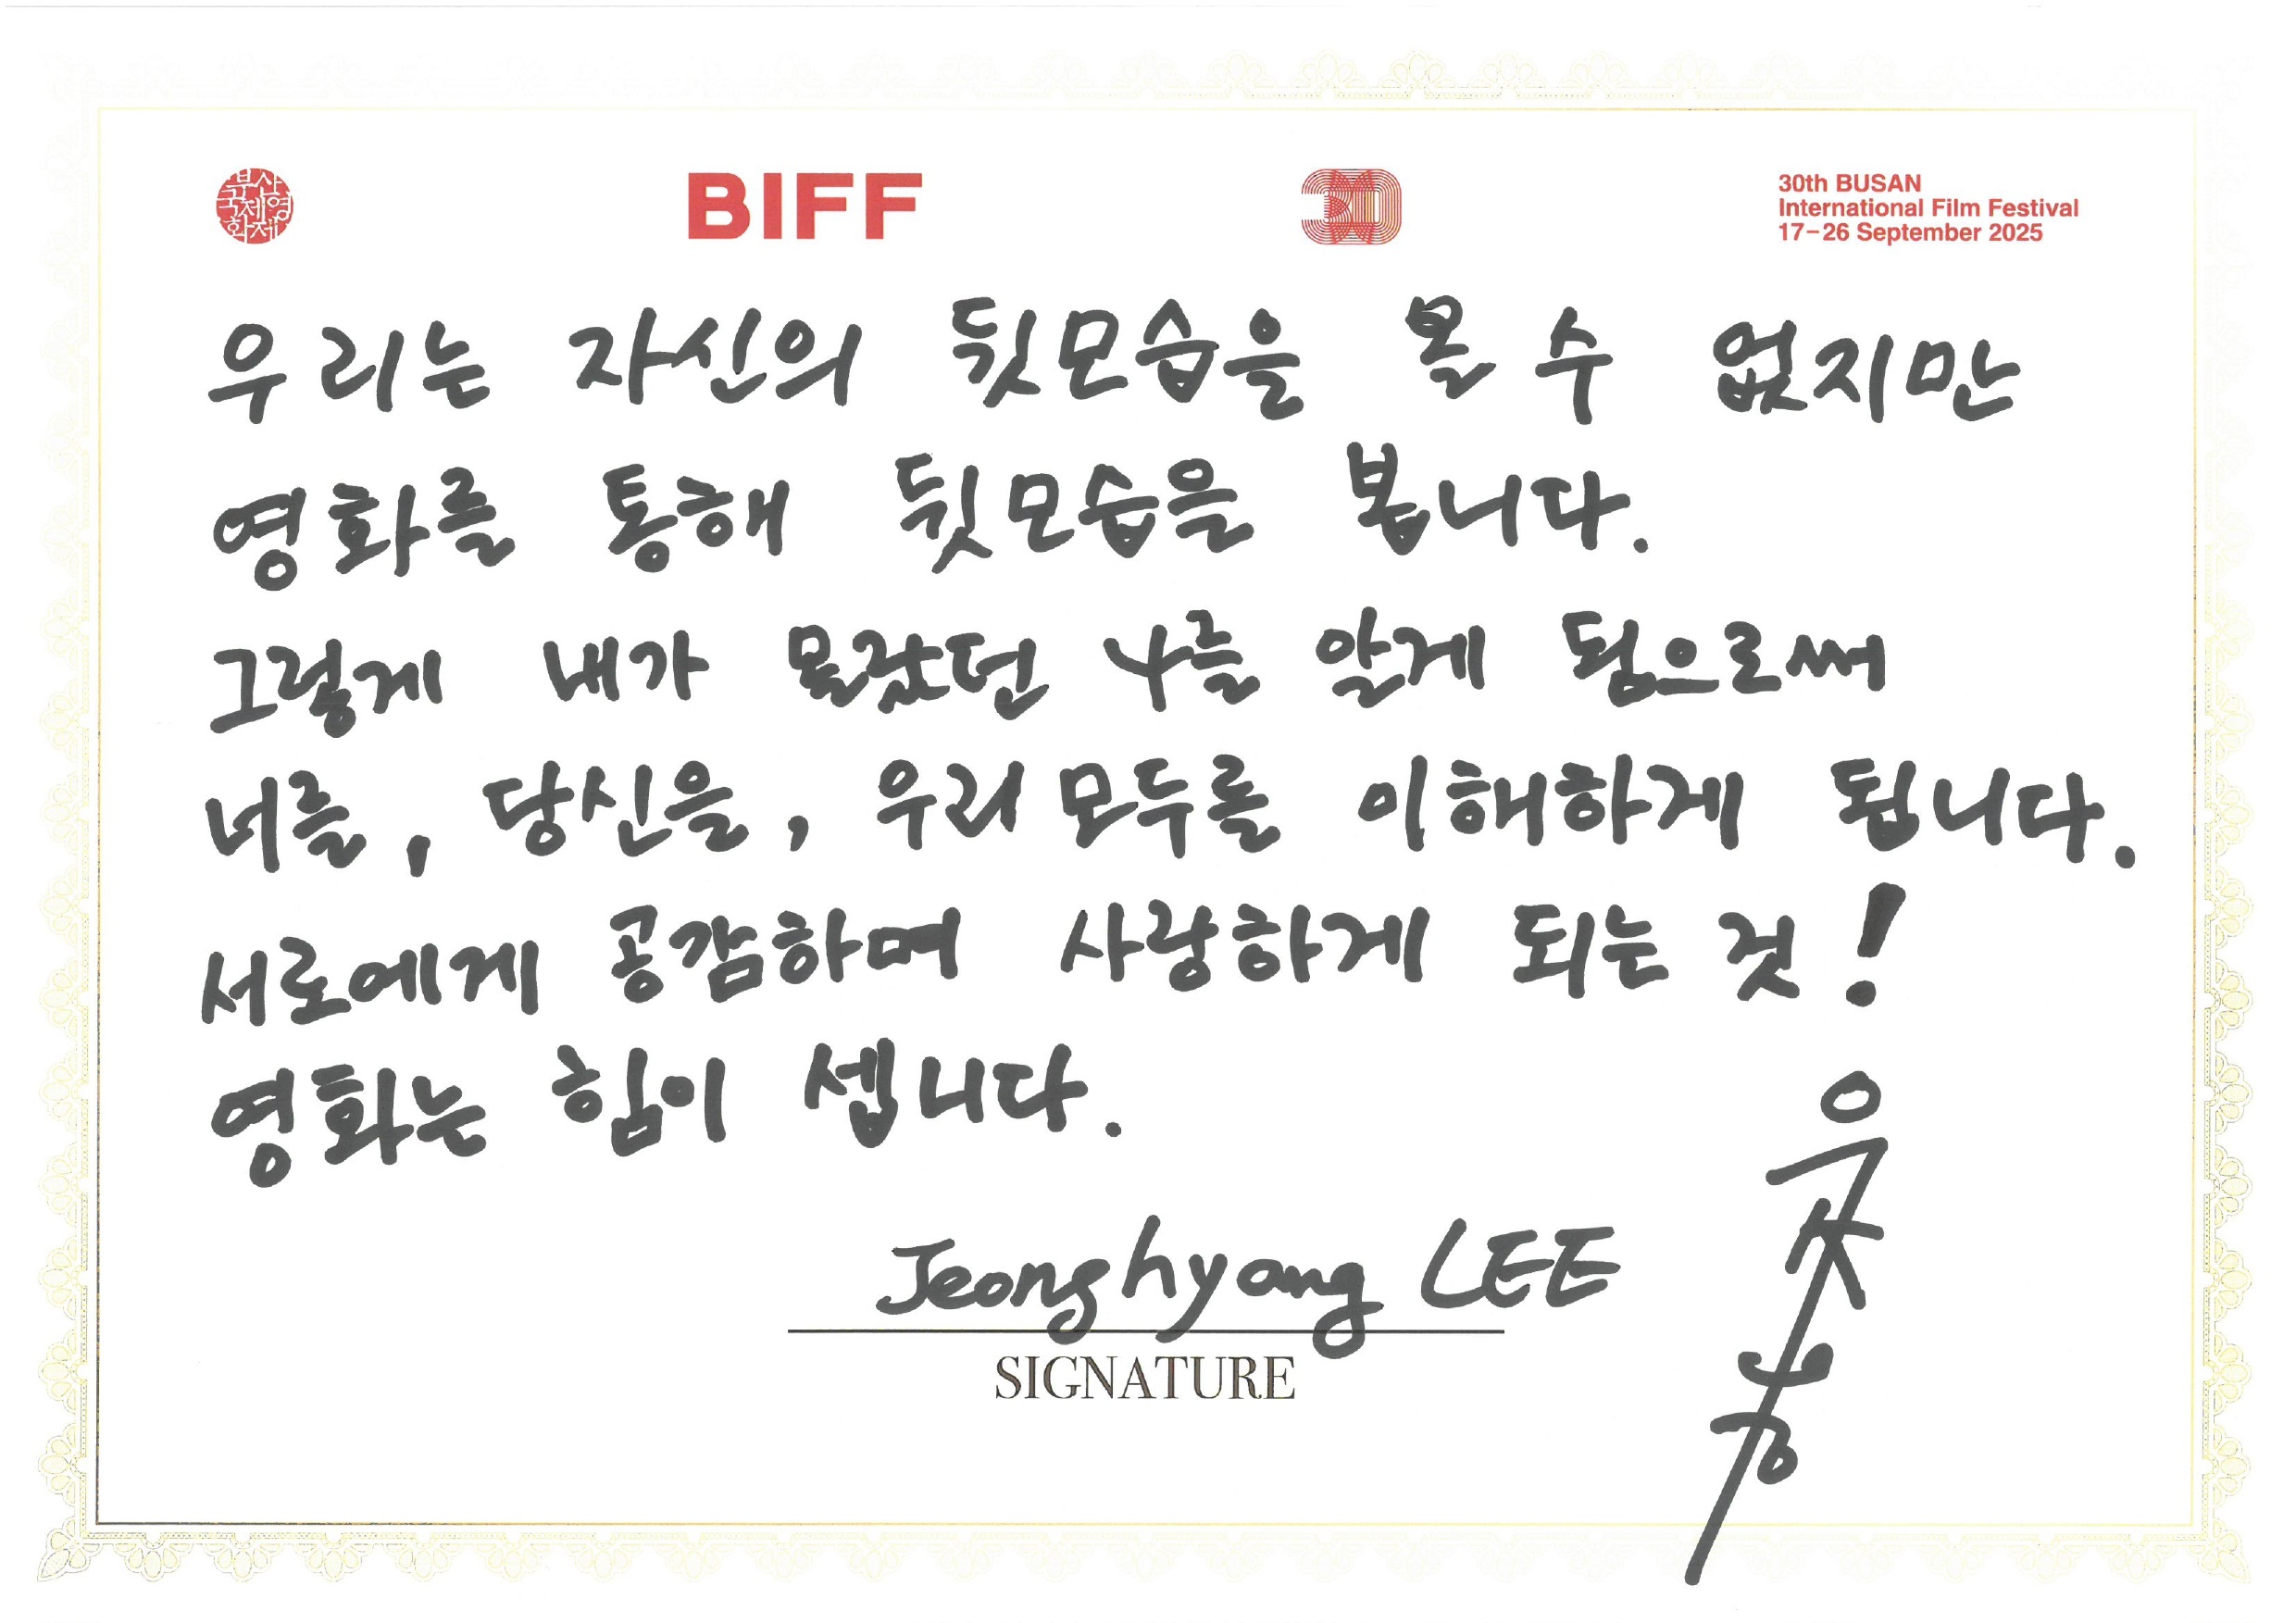 부산
국제영
화제
BIFF
30
30th BUSAN
International Film Festival
17–26 September 2025
우리는 자신의 뒷모습을 볼 수 없지만
영화를 통해 뒷모습을 봅니다.
그렇게 내가 몰랐던 나를 알게 됨으로써
너를, 당신을, 우리 모두를 이해하게 됩니다.
서로에게 공감하며 사랑하게 되는 것!
영화는 힘이 셉니다.
Jeonghyang LEE
SIGNATURE